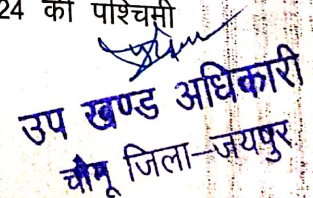 24 की पश्चिमी
उप खण्ड अधिकारी
चौमू जिला-जयपुर